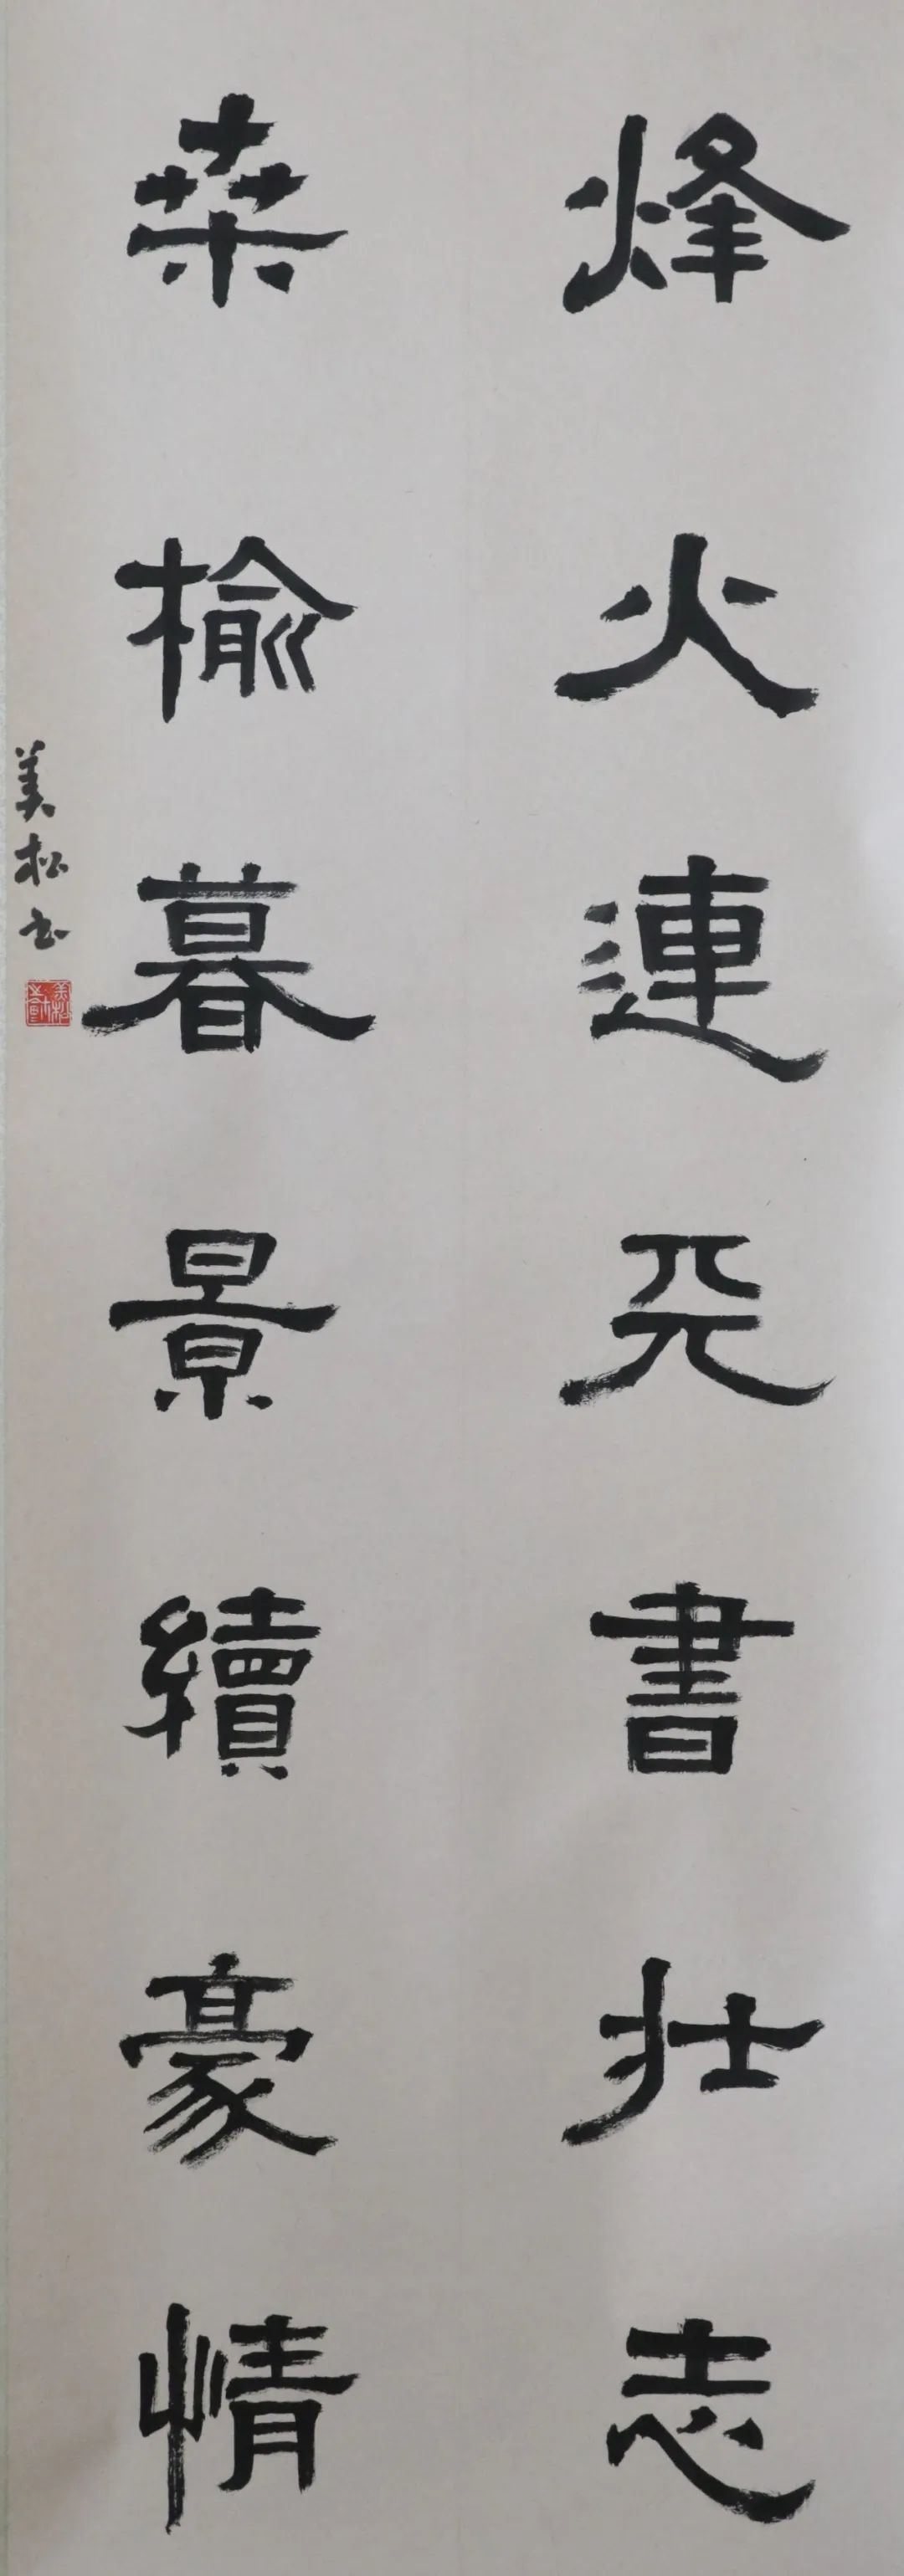 烽火連天書壯志
桑榆暮景續豪情
美松书